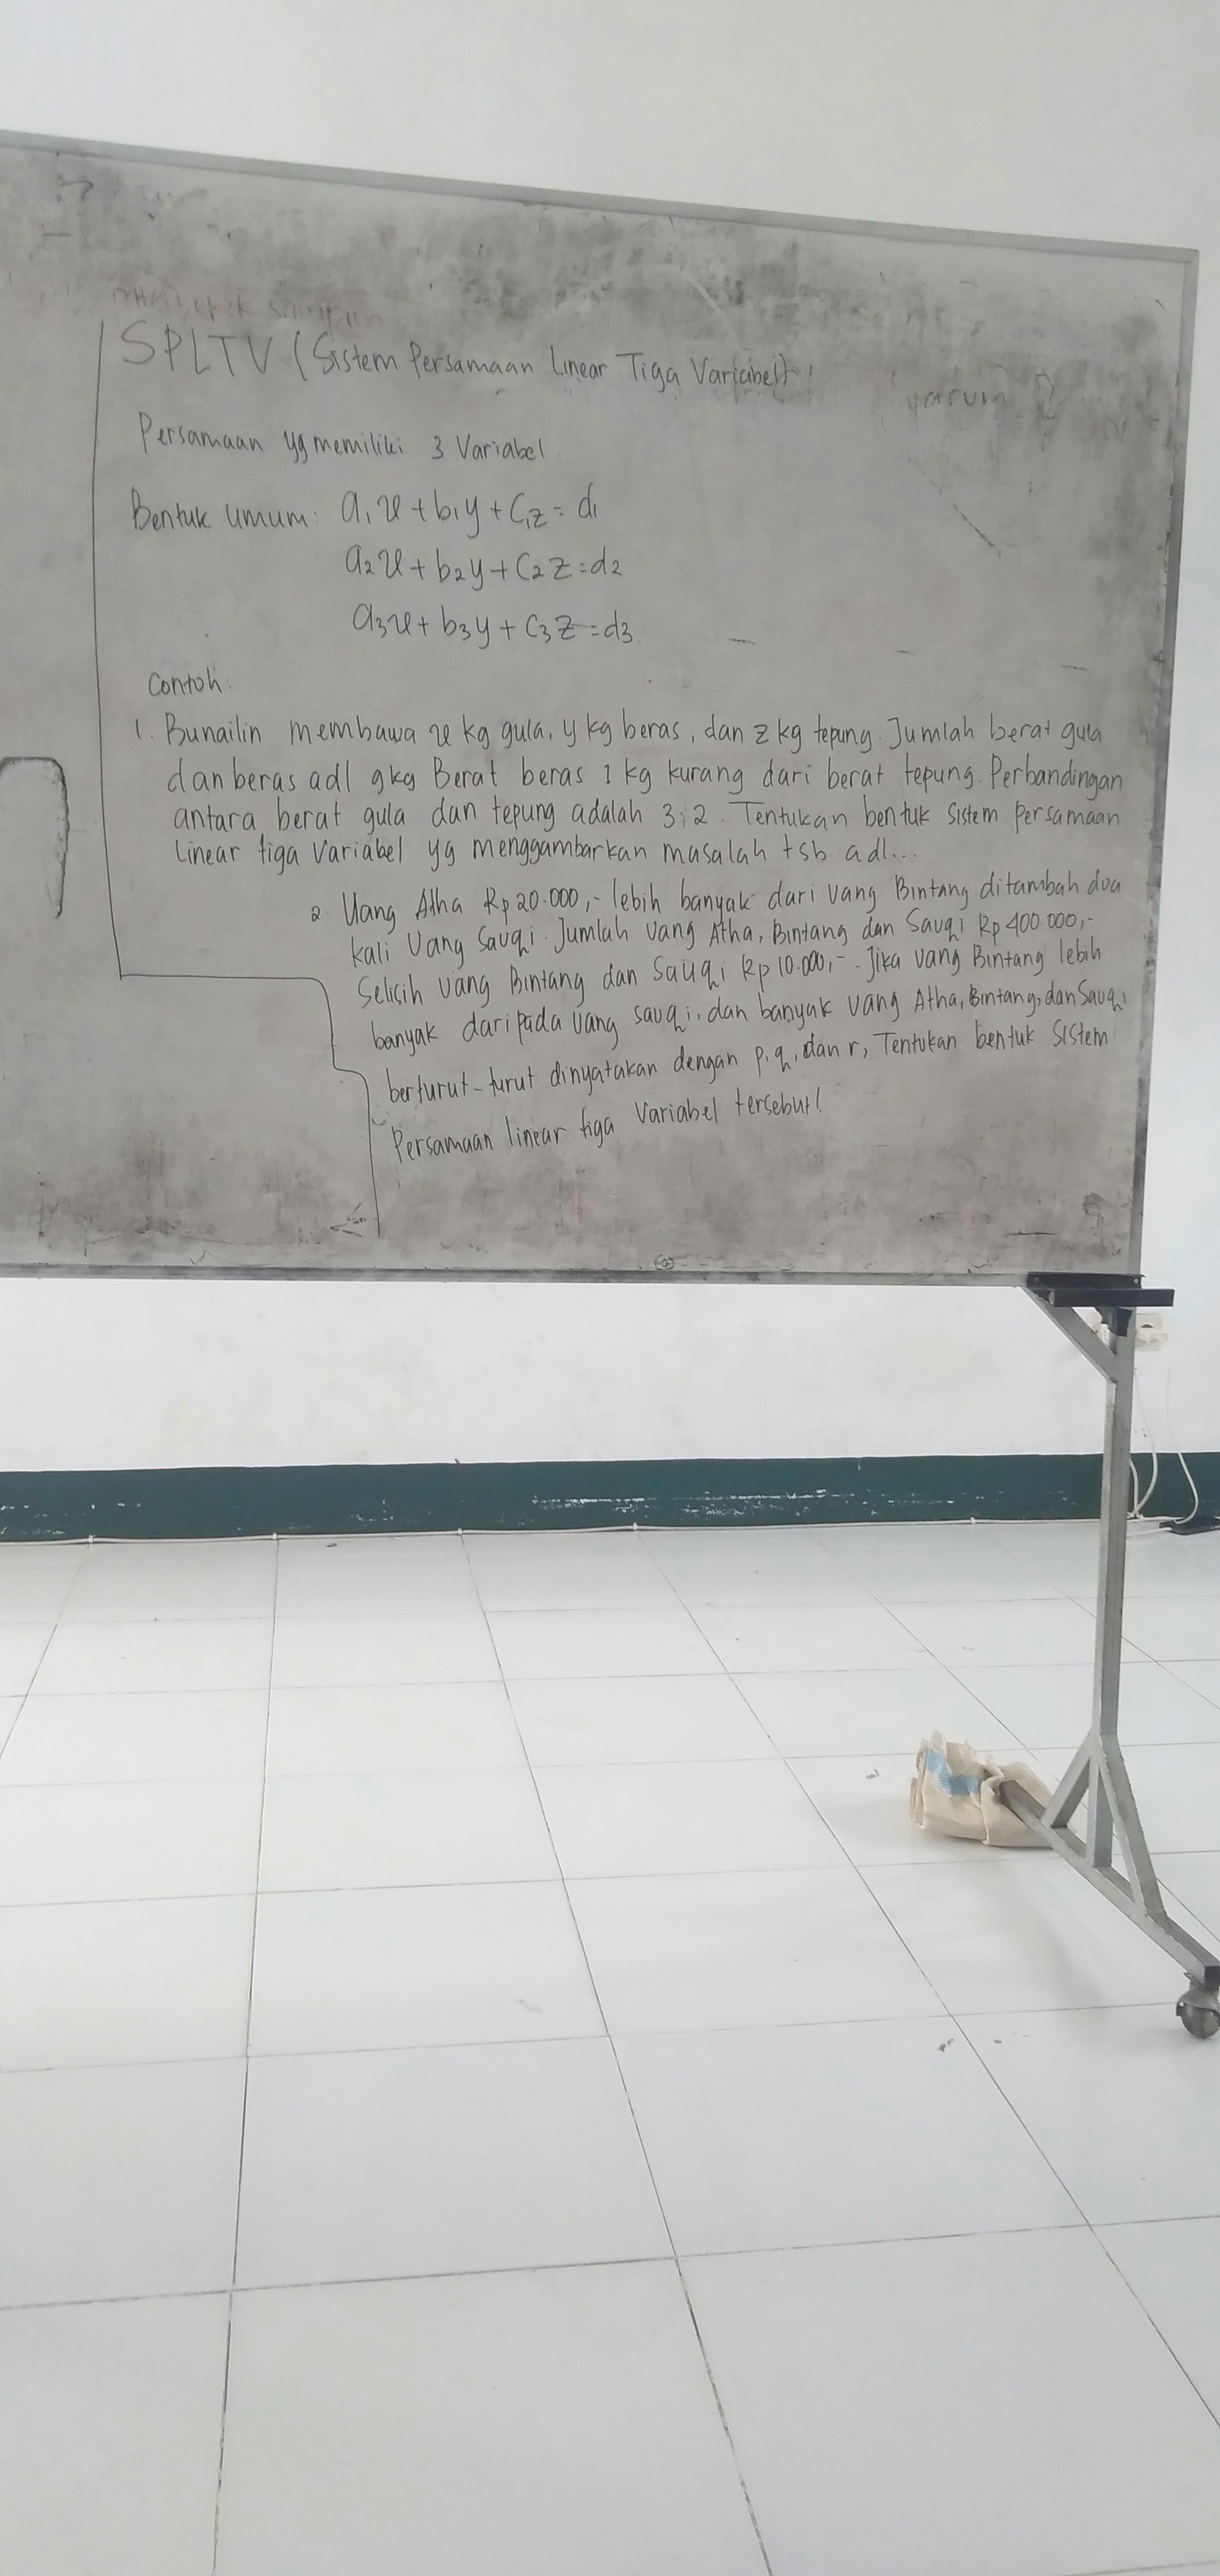 SPLTV (Sistem Persamaan Linear Tiga Variabel)
Persamaan yg memiliki 3 Variabel
Bentuk umum: a₁x + b₁y + c₁z = d₁
a₂x + b₂y + c₂z = d₂
a₃x + b₃y + c₃z = d₃
Contoh:
1. Bunailin membawa x kg gula, y kg beras, dan z kg tepung. Jumlah berat gula
dan beras adl 9kg Berat beras 1 kg kurang dari berat tepung. Perbandingan
antara berat gula dan tepung adalah 3:2. Tentukan bentuk sistem persamaan
linear tiga Variabel yg menggambarkan masalah tsb adl...
2. Uang Atha Rp 20.000,- lebih banyak dari uang Bintang ditambah dua
kali Uang Sauqi. Jumlah uang Atha, Bintang dan Sauqi Rp 400.000,-
Selisih uang Bintang dan Sauqi Rp 10.000,-. Jika uang Bintang lebih
banyak daripada uang sauqi, dan banyak uang Atha, Bintang, dan Sauqi
berturut-turut dinyatakan dengan p, q, dan r, Tentukan bentuk Sistem
Persamaan linear tiga Variabel tersebut!